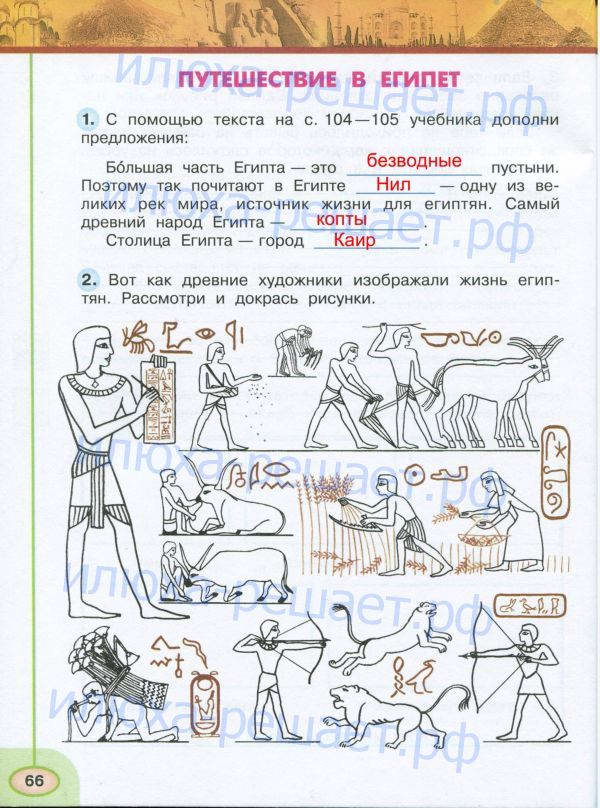 ПУТЕШЕСТВИЕ В ЕГИПЕТ
1. С помощью текста на с. 104—105 учебника дополни
предложения:
Бо́льшая часть Египта — это безводные пустыни.
Поэтому так почитают в Египте Нил — одну из ве-
ликих рек мира, источник жизни для египтян. Самый
древний народ Египта — копты .
Столица Египта — город Каир .
2. Вот как древние художники изображали жизнь егип-
тян. Рассмотри и докрась рисунки.
илюха-решает.рф
илюха-решает.рф
илюха-решает.рф
илюха-решает.рф
илюха-решает.рф
66